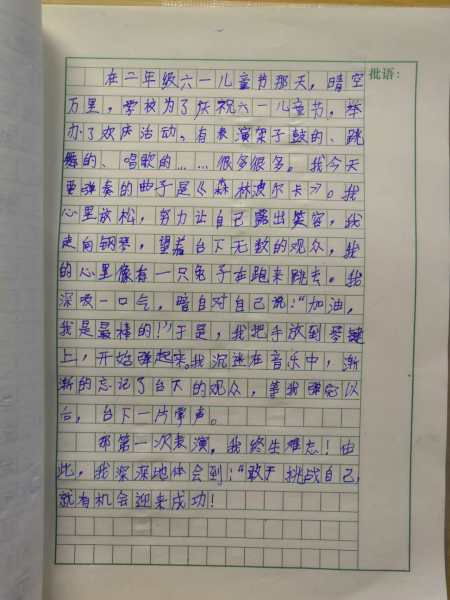 在二年级六一儿童节那天，晴空
批语：
万里，学校为了庆祝六一儿童节，举
办了欢庆活动。有表演架子鼓的、跳
舞的、唱歌的……很多很多。我今天
要弹奏的曲子是《森林波尔卡》。我
心里放松，努力让自己露出笑容，我
走向钢琴，望着台下无数的观众，我
的心里像有一只兔子在跑来跳去。我
深吸一口气，暗自对自己说：“加油，
我是最棒的！”于是，我把手放到琴键
上，开始弹起来。我沉迷在音乐中，渐
渐的忘记了台下的观众，等我弹完以
后，台下一片掌声。
那第一次表演，我终生难忘！由
此，我深深地体会到：“敢于挑战自己，
就有机会迎来成功！